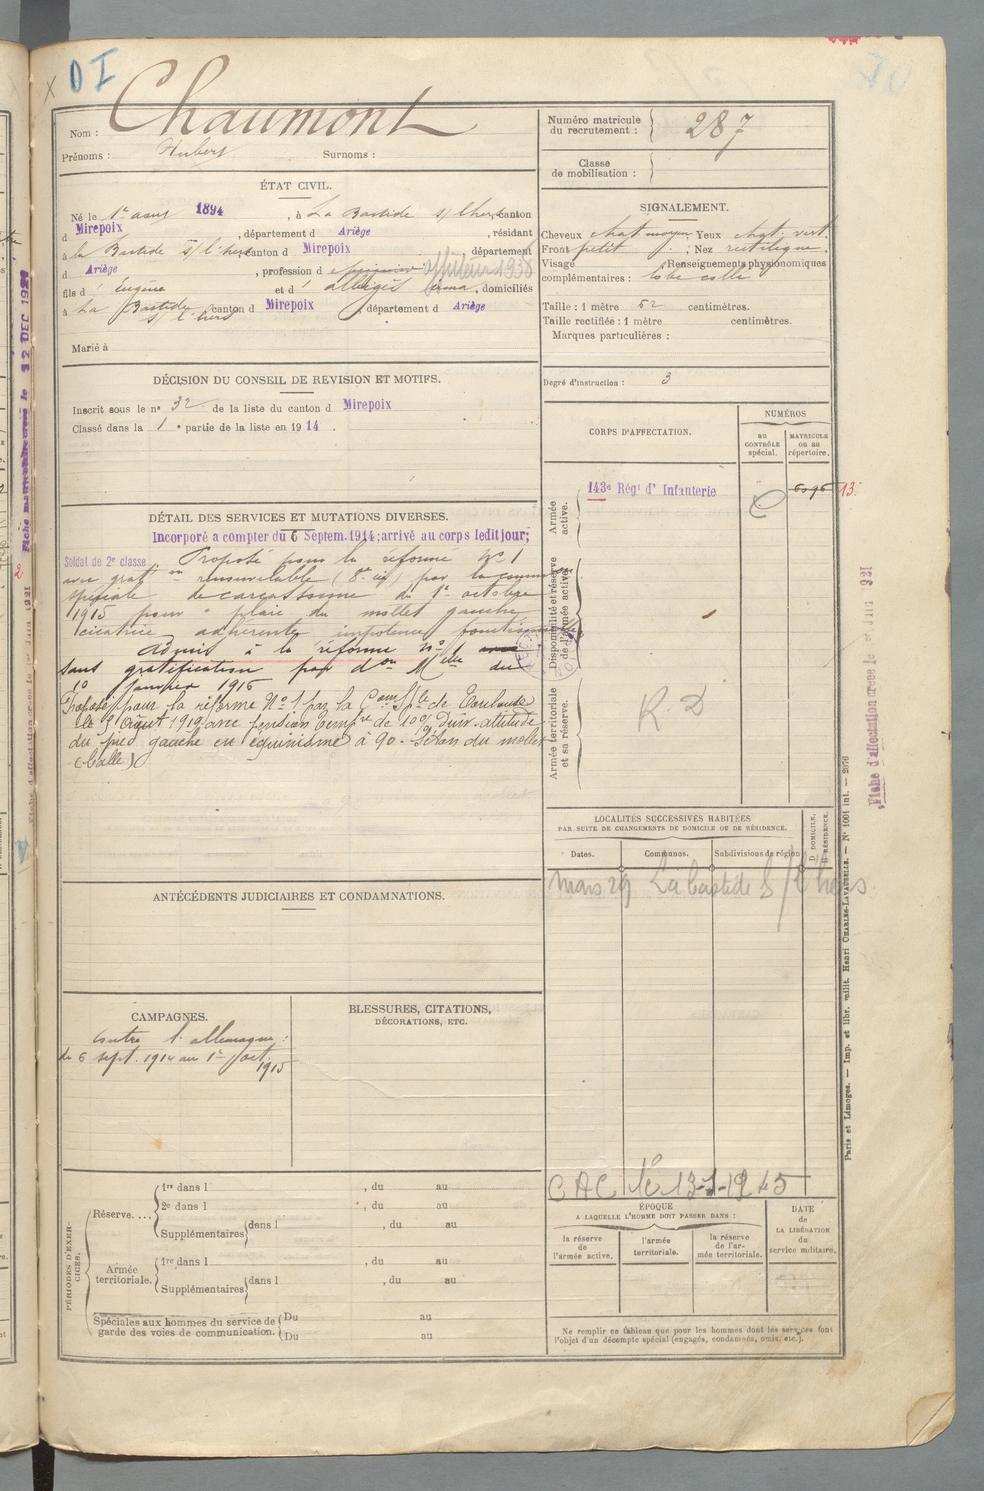 DI
Nom : Chaumont
Prénoms : Hubert Surnoms :
ÉTAT CIVIL.
Né le 1er 1894 , à La Bastide s/ l'hers, canton
d Mirepoix , département d Ariège , résidant
à la Bastide s/ l'hers canton d Mirepoix , département
d Ariège , profession d 1938
fils d' Eugène et d' , domiciliés
à La Bastide s/ l'hers canton d Mirepoix , département d Ariège
Marié à
DÉCISION DU CONSEIL DE REVISION ET MOTIFS.
Inscrit sous le no 32 de la liste du canton d Mirepoix
Classé dans la 1 e partie de la liste en 1914 .
DÉTAIL DES SERVICES ET MUTATIONS DIVERSES.
Incorporé a compter du 6 Septem.1914; arrivé au corps ledit jour;
Soldat de 2e classe Proposé pour la réforme No 1
avec graton renouvelable (8e ) par la commion
spéciale de Carcassonne du 1er octobre
1915 pour " plaie du mollet gauche
cicatrice adhérente impotence fonctionnelle
Admis à la réforme no 1
sans gratification par don Mlle du
10 janvier 1916
Proposé pour la réforme No 1 par la Comon Sple de Toulouse
le 9 Août 1919 avec pension tempre de 10% attitude
du pied gauche en équinisme à 90 - du mollet
(balle)
ANTÉCÉDENTS JUDICIAIRES ET CONDAMNATIONS.
CAMPAGNES.
Contre l'allemagne :
du 6 sept. 1914 au 1er oct. 1915
BLESSURES, CITATIONS,
DÉCORATIONS, ETC.
PÉRIODES D'EXERCICES.
Réserve.... 1re dans l , du au
2e dans l , du au
Supplémentaires dans l , du au
Armée territoriale. 1re dans l , du au
Supplémentaires dans l , du au
Spéciales aux hommes du service de garde des voies de communication. Du au
Du au
Numéro matricule
du recrutement : 287
Classe
de mobilisation :
SIGNALEMENT.
Cheveux chat. moyen Yeux chat. vert
Front petit ; Nez rectiligne
Visage Renseignements physionomiques
complémentaires : lobe collé
Taille : 1 mètre 62 centimètres.
Taille rectifiée : 1 mètre centimètres.
Marques particulières :
Degré d'instruction : 3
CORPS D'AFFECTATION.
NUMÉROS
au CONTRÔLE spécial.
MATRICULE ou au répertoire.
Armée active.
143e Régt d' Infanterie 6096 13.
Disponibilité et réserve de l'armée active.
Armée territoriale et sa réserve.
R. D
LOCALITÉS SUCCESSIVES HABITÉES
PAR SUITE DE CHANGEMENTS DE DOMICILE OU DE RÉSIDENCE.
Dates. Communes. Subdivisions de région D. DOMICILE. R. RÉSIDENCE.
mars 29 La bastide S/l'hers
CAC le 13-1-1945
ÉPOQUE
A LAQUELLE L'HOMME DOIT PASSER DANS :
la réserve de l'armée active.
l'armée territoriale.
la réserve de l'armée territoriale.
DATE
de
LA LIBÉRATION
du
service militaire.
Ne remplir ce tableau que pour les hommes dont les services font
l'objet d'un décompte spécial (engagés, condamnés, omis, etc.).
Paris et Limoges. — Imp. et libr. milit. Henri CHARLES-LAVAUZELLE. — No 1001 int. — 2076
Fiche d'affectation créée le